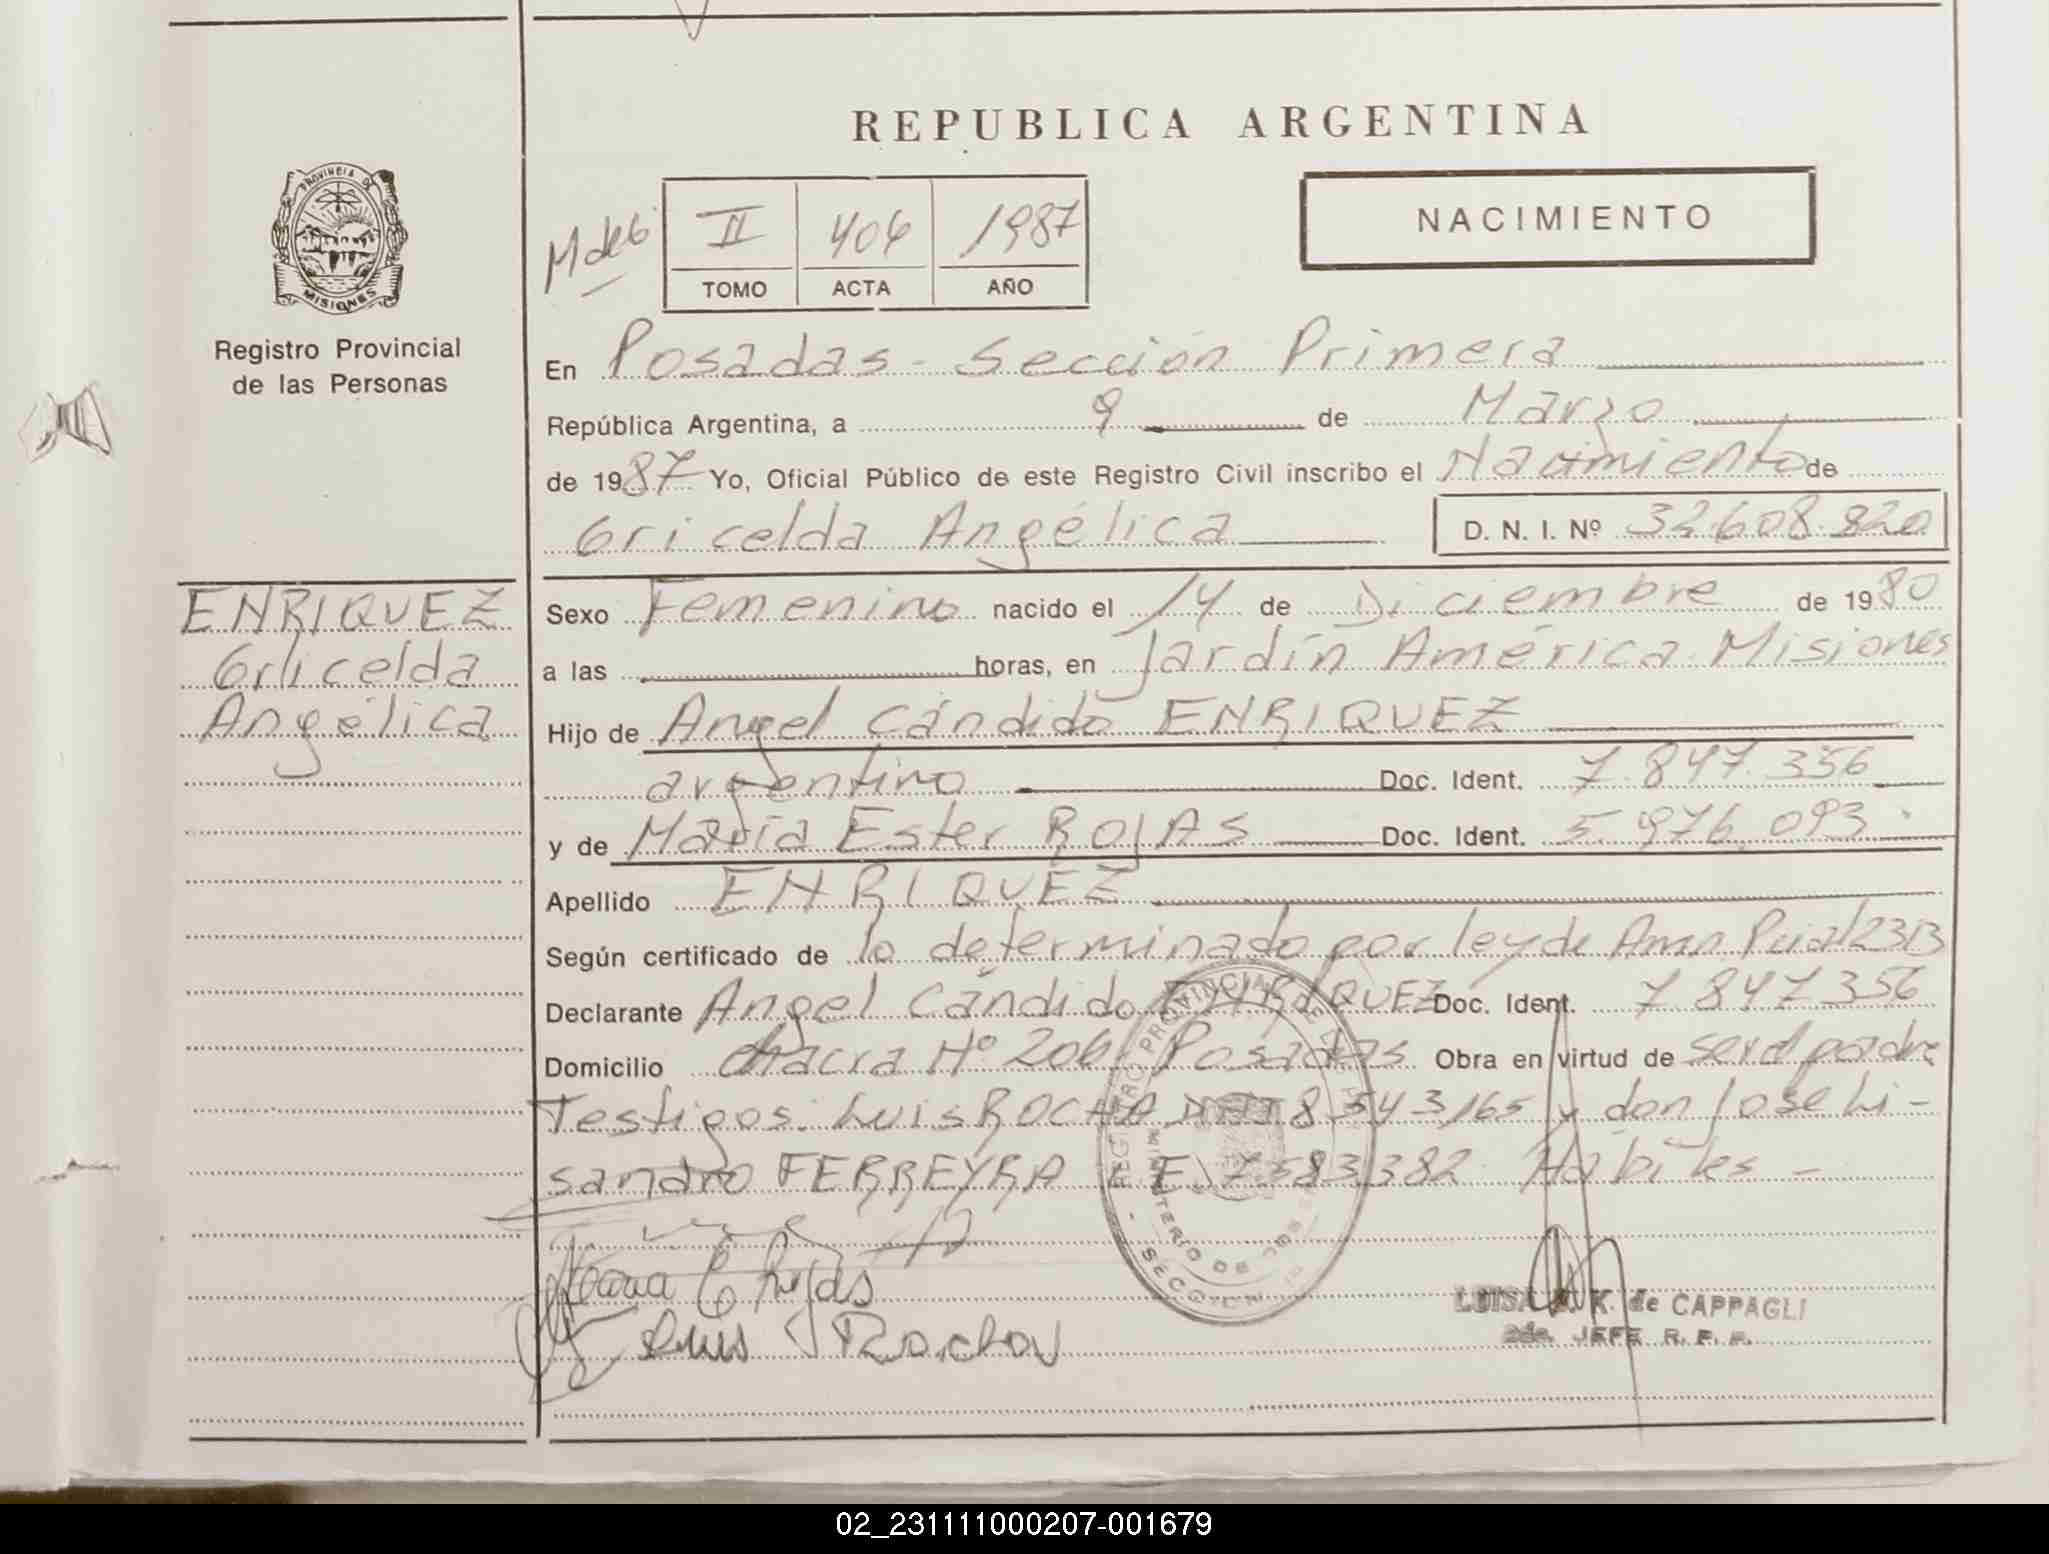 REPUBLICA ARGENTINA
NACIMIENTO
II 406 1987
TOMO ACTA AÑO
PROVINCIA DE
MISIONES
Registro Provincial
de las Personas
En Posadas - Sección Primera
República Argentina, a 9 de Marzo
de 1987 Yo, Oficial Público de este Registro Civil inscribo el Nacimiento de
Gricelda Angélica D. N. I. Nº 32.608.820
ENRIQUEZ
Gricelda
Angélica
Sexo Femenino nacido el 14 de Diciembre de 1980
a las horas, en Jardín América Misiones
Hijo de Angel Cándido ENRIQUEZ
argentino Doc. Ident. 7.847.356
y de María Ester ROJAS Doc. Ident. 5.976.093.
Apellido ENRIQUEZ
Según certificado de lo determinado por ley de Amn. Pcial 2313
Declarante Angel Cándido ENRIQUEZ Doc. Ident. 7 847 356
Domicilio chacra Nº 206 Posadas Obra en virtud de ser el padre
Testigos: Luis ROCHA DNI 8543165 y don José Li-
sandro FERREYRA L.E. 7583382. Hábiles -
Luis Rocha
LUISA K. de CAPPAGLI
2da. JEFE R. P. P.
02_231111000207-001679